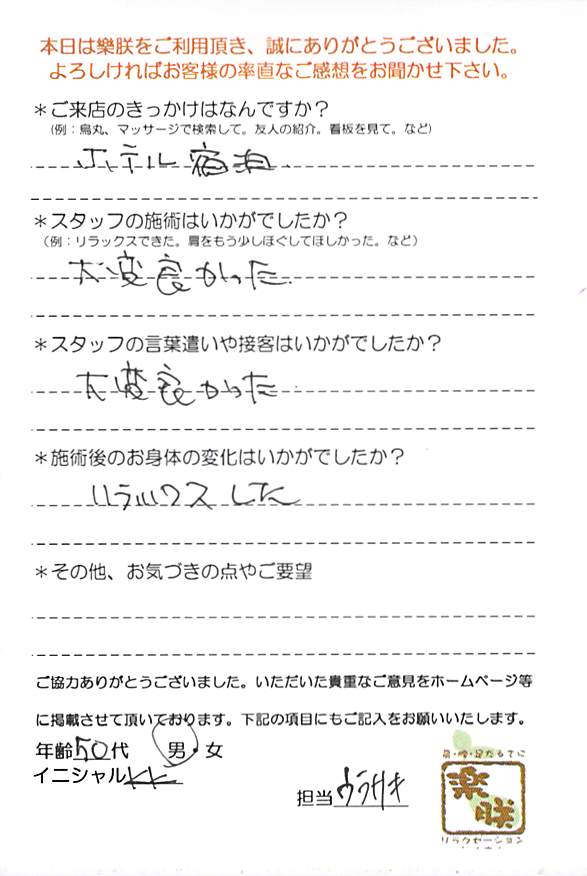 本日は樂朕をご利用頂き、誠にありがとうございました。
よろしければお客様の率直なご感想をお聞かせ下さい。
＊ご来店のきっかけはなんですか？
（例：烏丸、マッサージで検索して。友人の紹介。看板を見て。など）
ホテル宿泊
＊スタッフの施術はいかがでしたか？
（例：リラックスできた。肩をもう少しほぐしてほしかった。など）
大変良かった
＊スタッフの言葉遣いや接客はいかがでしたか？
大変良かった
＊施術後のお身体の変化はいかがでしたか？
リラックスした
＊その他、お気づきの点やご要望
ご協力ありがとうございました。いただいた貴重なご意見をホームページ等
に掲載させて頂いております。下記の項目にもご記入をお願いいたします。
年齢50代 男・女
イニシャルKK
担当ウラサキ
楽朕
リラクゼーション